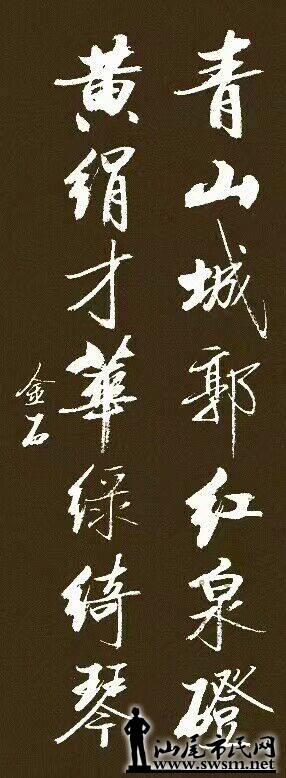 青山城郭红泉磴
黄绢才華綵绮琴
金石
汕尾市民网
www.swsm.net